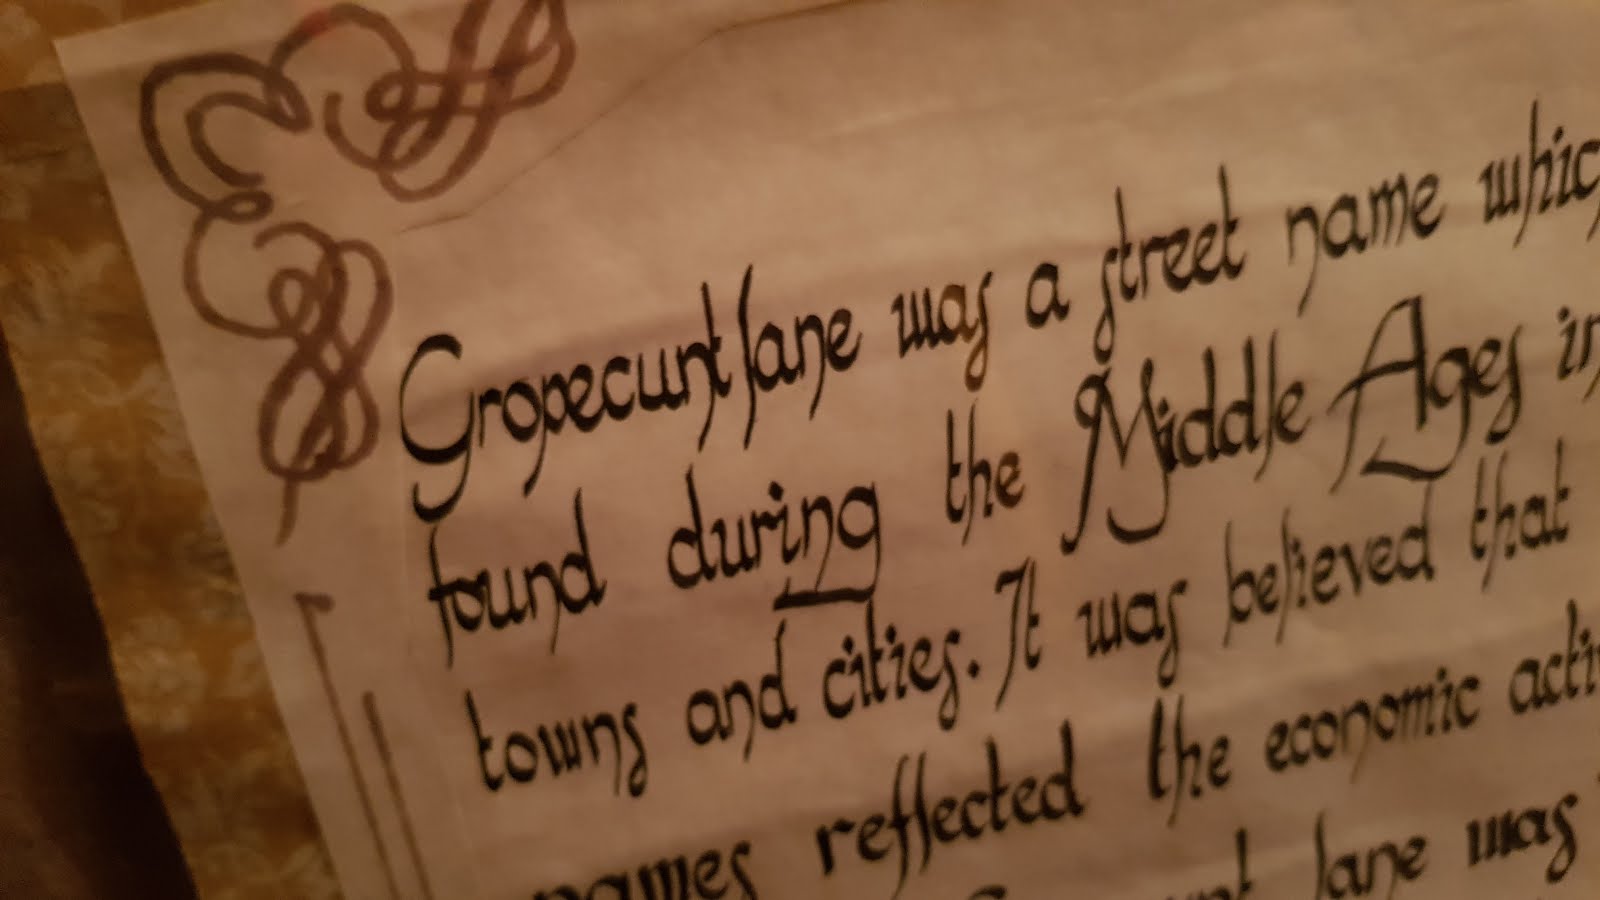 Gropecunt lane was a street name whic
found during the Middle Ages in
towns and cities. It was believed that
names reflected the economic acti
lane was